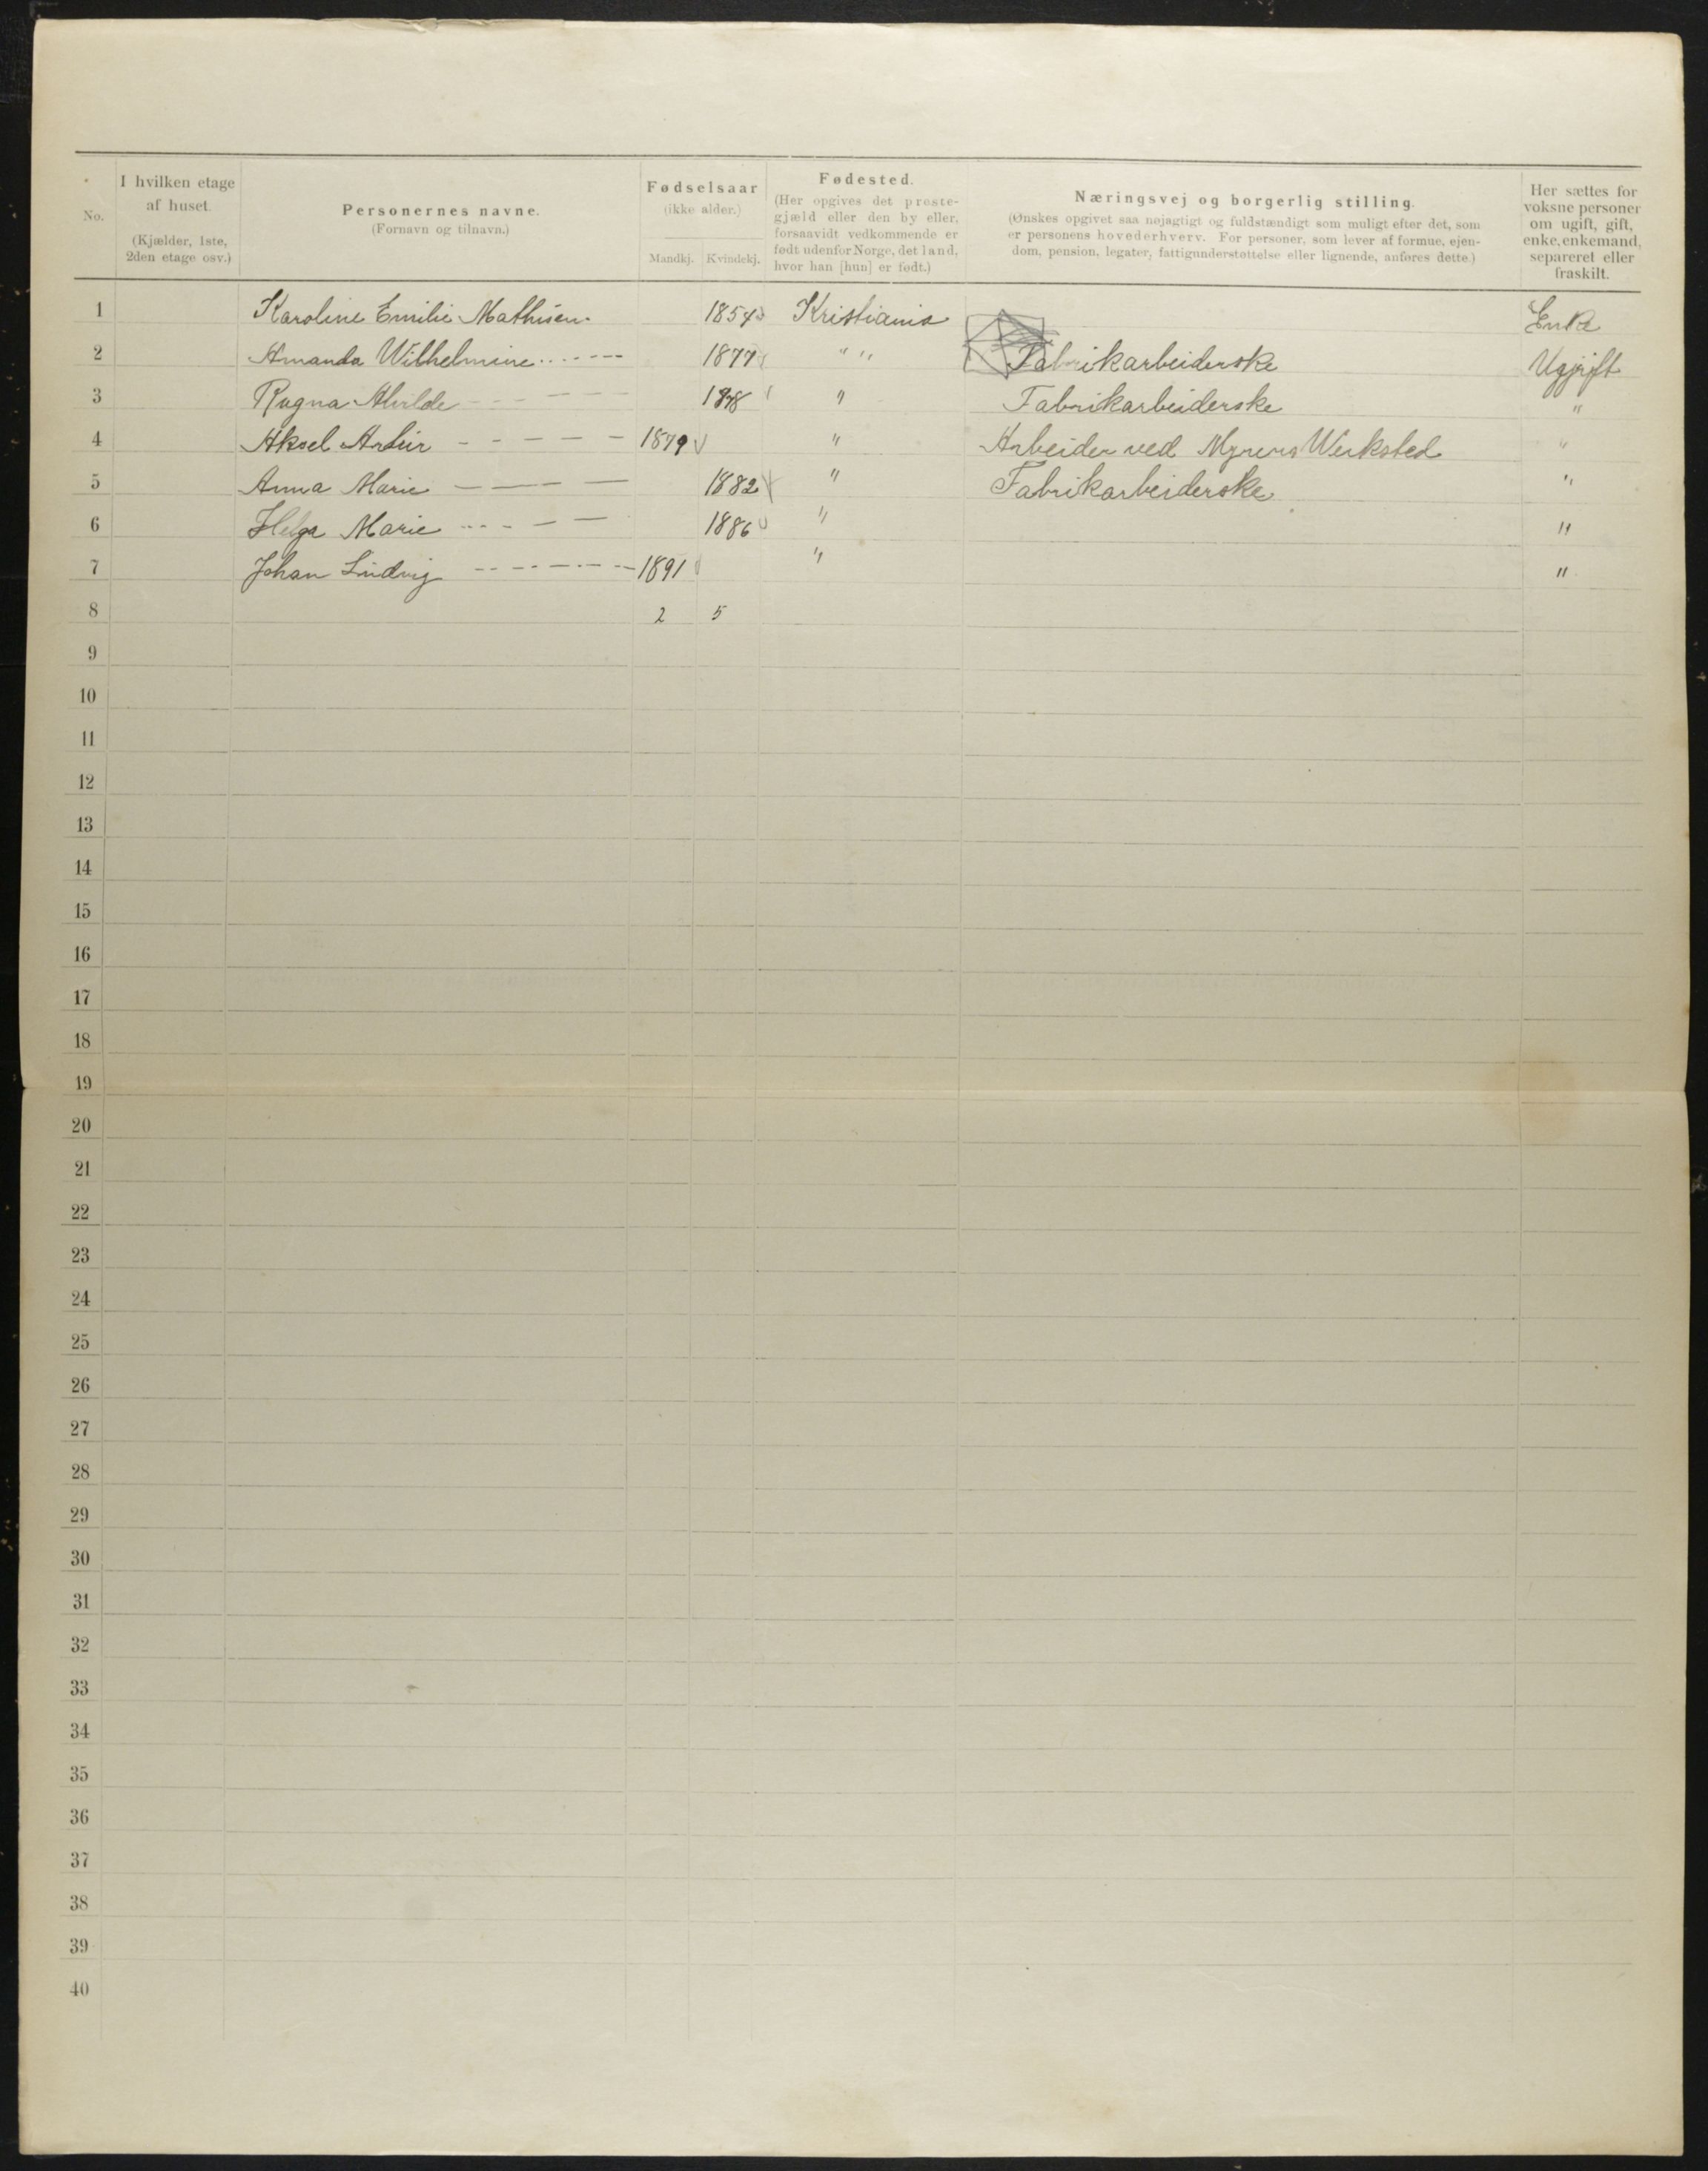 No.
I hvilken etage af huset.
(Kjælder, 1ste, 2den etage osv.)
Personernes navne.
(Fornavn og tilnavn.)
Fødselsaar
(ikke alder.)
Mandkj. Kvindekj.
Fødested.
(Her opgives det preste-
gjæld eller den by eller,
forsaavidt vedkommende er
født udenfor Norge, det land,
hvor han [hun] er født.)
Næringsvej og borgerlig stilling.
(Ønskes opgivet saa nøjagtigt og fuldstændigt som muligt efter det, som
er personens hovederhverv. For personer, som lever af formue, ejen-
dom, pension, legater, fattigunderstøttelse eller lignende, anføres dette.)
Her sættes for
voksne personer
om ugift, gift,
enke, enkemand,
separeret eller
fraskilt.
1 Karoline Emilie Mathisen. 1854 Kristiania Enke
2 Amanda Wilhelmine ....--- 1877 " " Fabrikarbeiderske Ugjift
3 Ragna Alvilde - - - - - - 1878 " Fabrikarbeiderske "
4 Aksel Artur - - - - - 1879 " Arbeider ved Myrens Werksted "
5 Anna Marie - - - - 1882 " Fabrikarbeiderske "
6 Helga Marie - - - - - 1886 " "
7 Johan Ludvig - - - - - - - 1891 " "
8 2 5
9
10
11
12
13
14
15
16
17
18
19
20
21
22
23
24
25
26
27
28
29
30
31
32
33
34
35
36
37
38
39
40